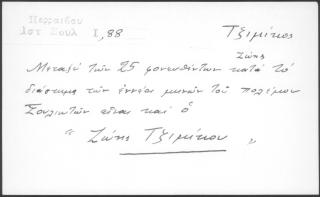 Περραιβου
Ιστ Σουλ I, 88
Τζιμίκος
Ζώης
Μεταξύ τῶν 25 φονευθέντων κατά τό
διάστημα τῶν ἐννέα μηνῶν τοῦ πολέμου
Σουλιωτῶν εἶναι καί ὁ
"Ζώης Τζιμίκου"